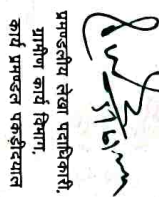 प्रमण्डलीय लेखा पदाधिकारी,
ग्रामीण कार्य विभाग,
कार्य प्रमण्डल पकड़ीदयाल